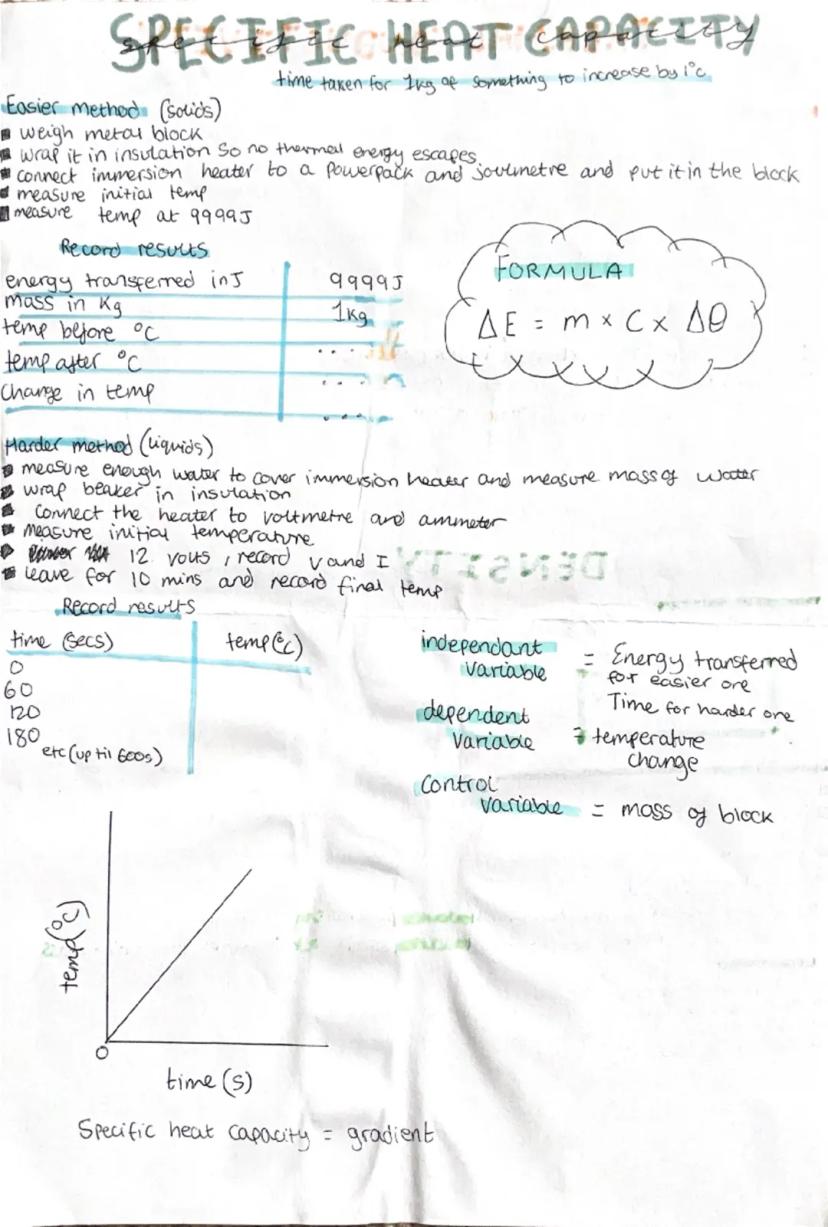 SPECIFIC HEAT CAPACITY
specific heat capacity
time taken for 1kg of something to increase by 1°c
Easier method (solids)
weigh metal block
wrap it in insulation so no thermal energy escapes
connect immersion heater to a powerpack and joulmetre and put it in the block
measure initial temp
measure temp at 9999J
Record results
energy transferred in J 9999J
mass in Kg 1Kg
temp before °C ....
temp after °C ....
change in temp ....
FORMULA
ΔE = m × C × Δθ
Harder method (liquids)
measure enough water to cover immersion heater and measure mass of water
wrap beaker in insulation
connect the heater to voltmetre and ammeter
measure initial temperature
12 volts, record V and I
leave for 10 mins and record final temp
Record results
time (secs) temp(°c)
0
60
120
180
etc (up til 600s)
independant variable = Energy transferred for easier one
Time for harder one
dependent variable = temperature change
Control variable = mass of block
temp(°c)
0
time (s)
Specific heat capacity = gradient